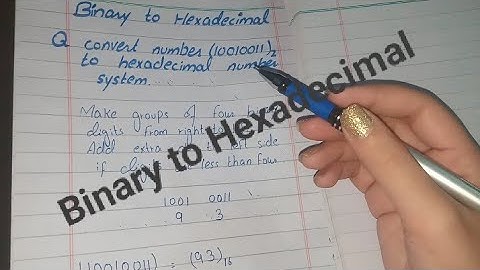 Binary to Hexadecimal
Q convert number (10010011)₂
to hexadecimal number
system.
Make groups of four
digits from right
Add extra left side
if less than four
1001 0011
9 3
(10010011) = (93)₁₆
Binary to Hexadecimal